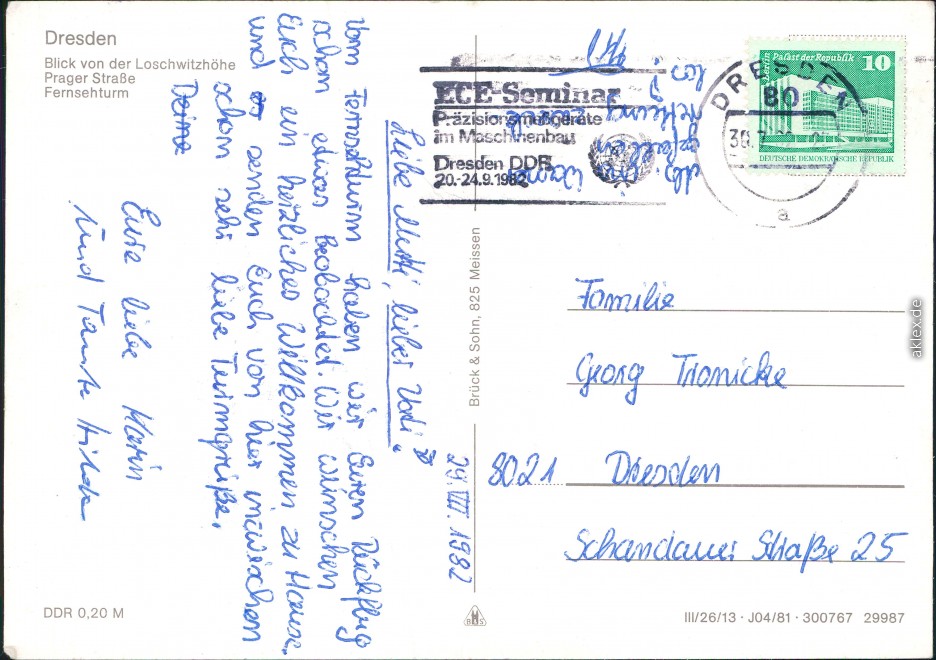 Dresden
Blick von der Loschwitzhöhe
Prager Straße
Fernsehturm
29. VII. 1982
Liebe Mutti, lieber Vati!
Vom Fernsehturm haben wir Euren Rückflug
schon etwas beobachtet. Wir wünschen
Euch ein herzliches Willkommen zu Hause.
und senden Euch von hier inzwischen
schon sehr liebe Turmgrüße.
Deine
Eure liebe Karin
und Tante Hilde
DDR 0,20 M
Brück & Sohn, 825 Meissen
ECE-Seminar
Präzisionsmeßgeräte
im Maschinenbau
Dresden DDR
20.-24.9.1982
DRESDEN 1
80
a
Berlin Palast der Republik 10
DEUTSCHE DEMOKRATISCHE REPUBLIK
Familie
Georg Tronicke
8021 Dresden
Schandauer Straße 25
III/26/13 · J04/81 · 300767 29987
aklex.de